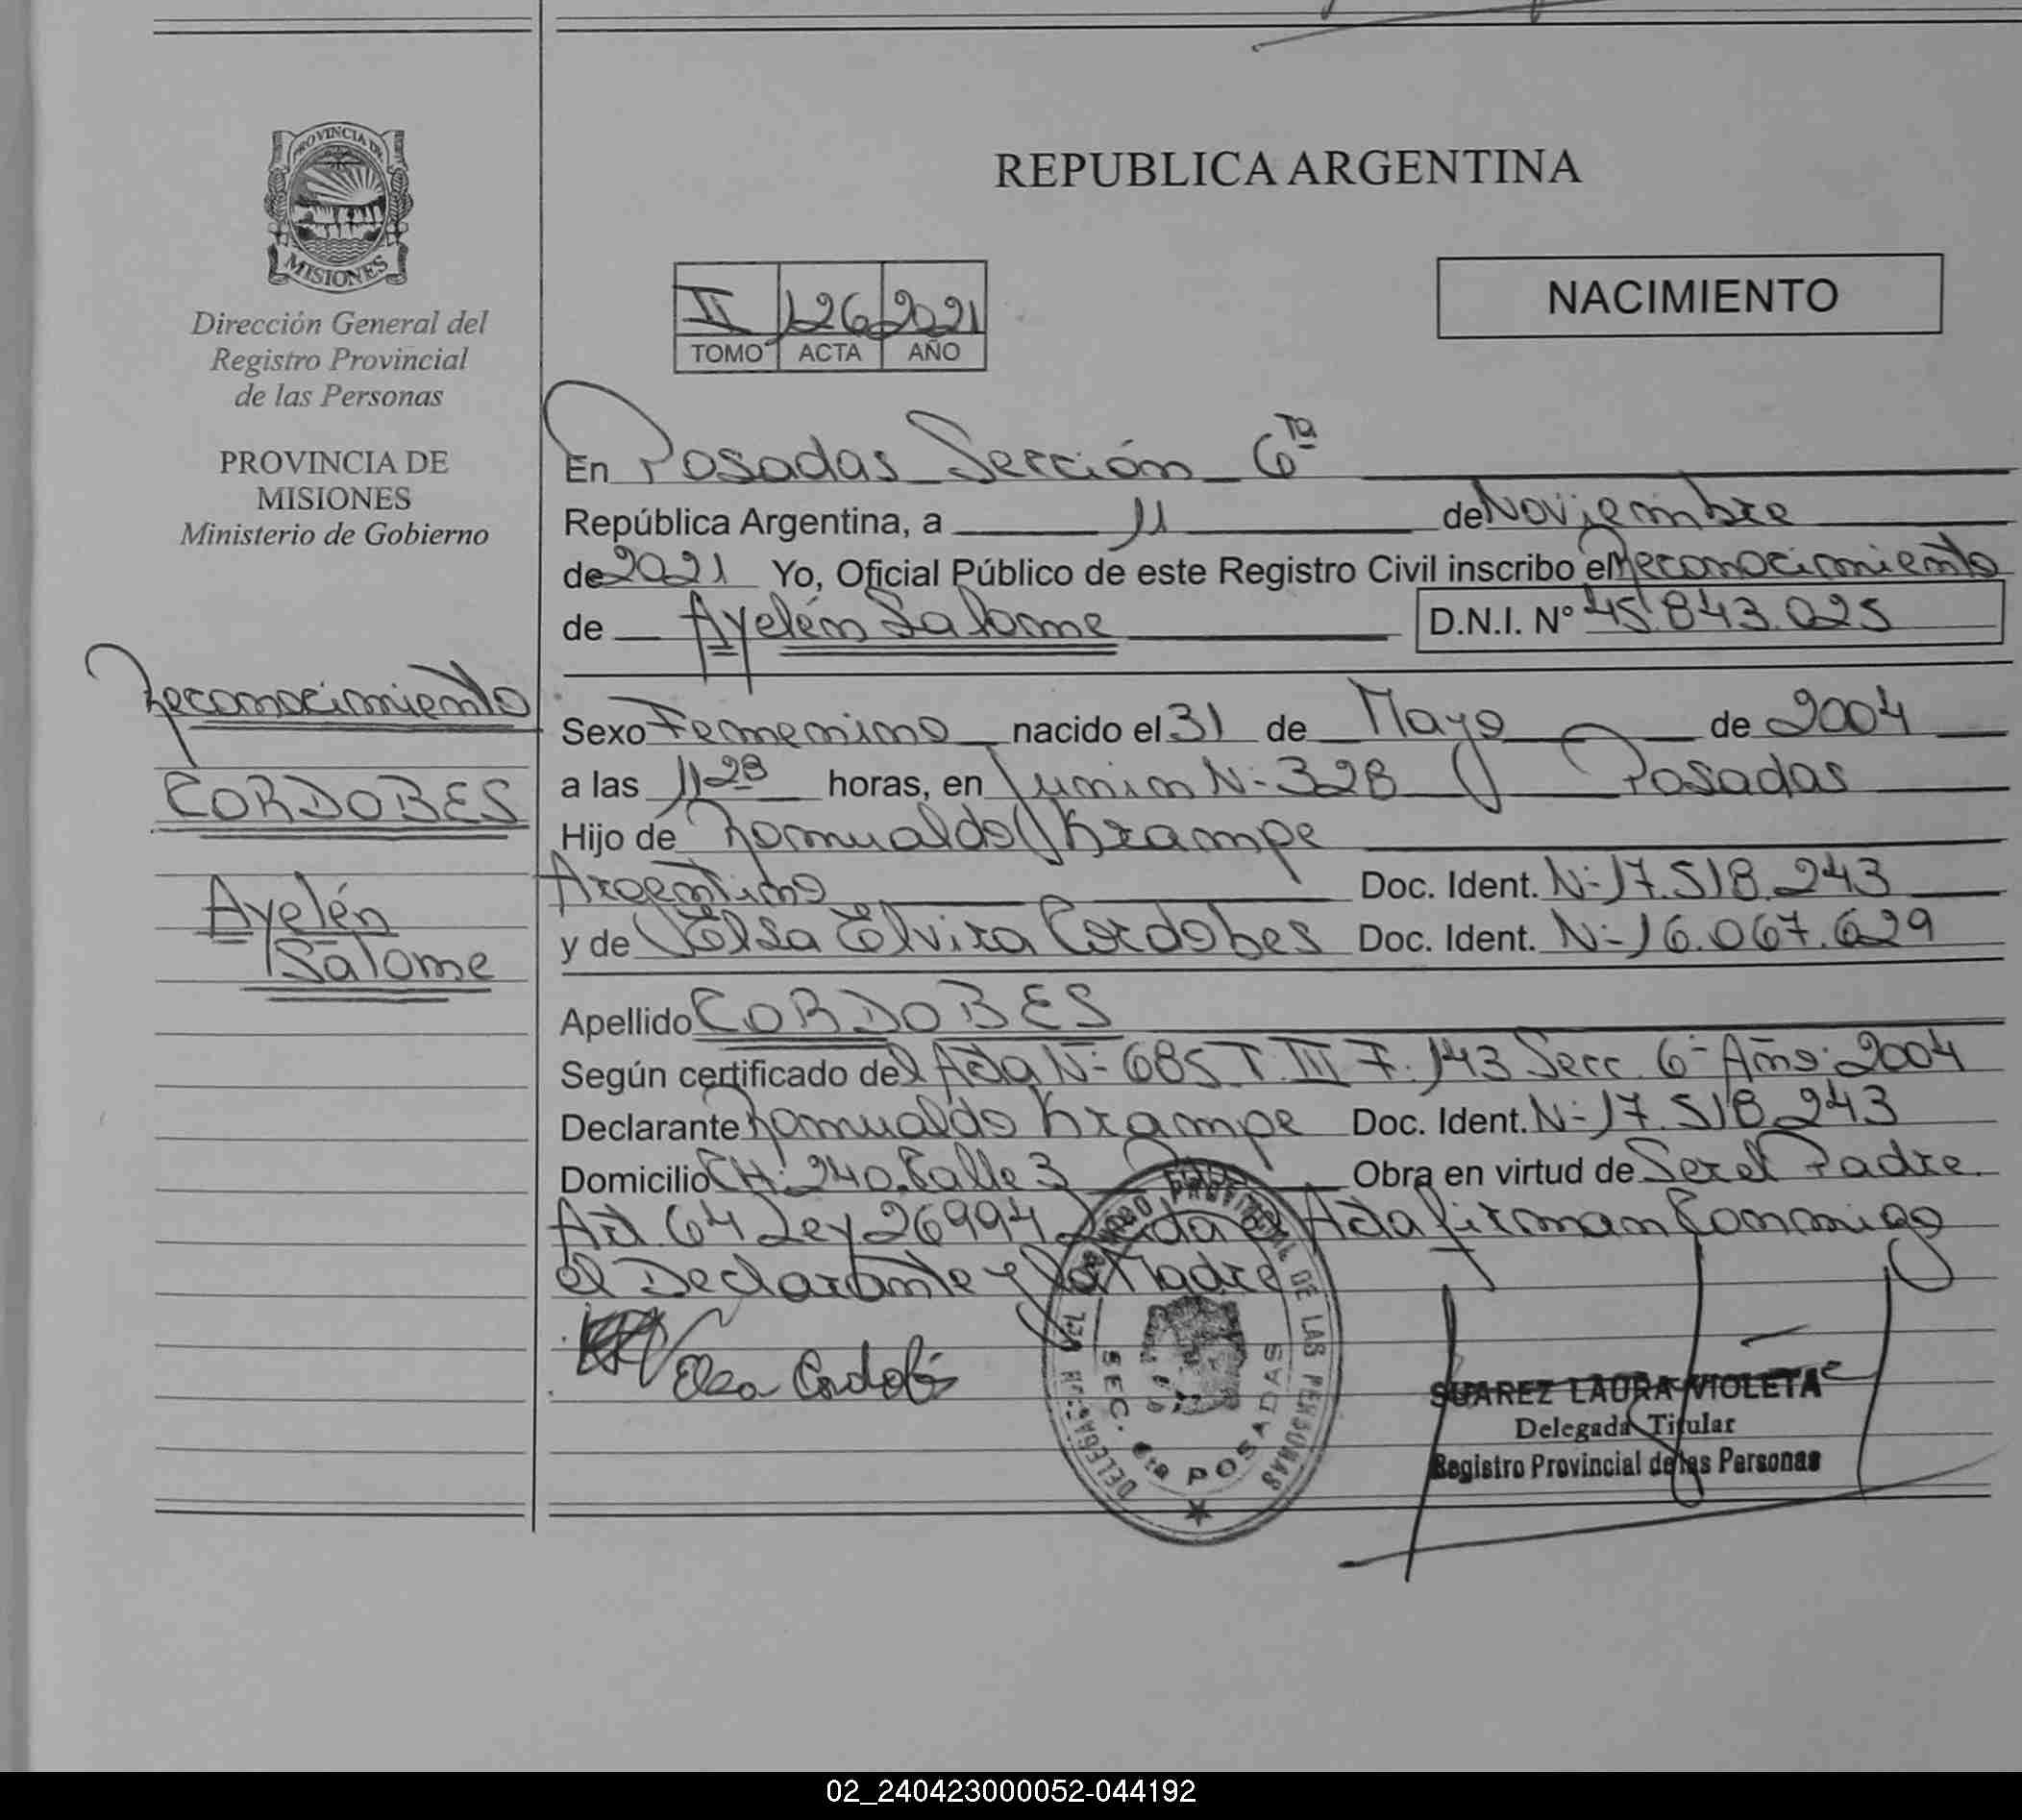 PROVINCIA DE
MISIONES
Dirección General del
Registro Provincial
de las Personas
PROVINCIA DE
MISIONES
Ministerio de Gobierno
Reconocimiento
CORDOBES
Ayelén
Salome
REPUBLICA ARGENTINA
II 126 2021
TOMO ACTA AÑO
NACIMIENTO
En Posadas Sección 6ta
República Argentina, a 11 de Noviembre
de 2021 Yo, Oficial Público de este Registro Civil inscribo el Reconocimiento
de Ayelén Salome D.N.I. Nº 45.843.025
Sexo Femenino nacido el 31 de Mayo de 2004
a las 11 28 horas, en Junin N- 328 Posadas
Hijo de Romualdo Krampe
Argentino Doc. Ident. N- 17.518.243
y de Elsa Elvira Cordobes Doc. Ident. N- 16.067.629
Apellido CORDOBES
Según certificado del Acta N- 685 T. III F. 143 Secc. 6- Año: 2004
Declarante Romualdo Krampe Doc. Ident. N- 17.518.243
Domicilio CH: 240. Calle 3 Obra en virtud de Ser el Padre.
Art. 64 Ley 26994 Leida el Acta firman Conmigo
el Declarante y la Madre
Elsa Cordobés
REGISTRO PROVINCIAL DE LAS PERSONAS
DELEGACION
SEC. 6ta POSADAS
SUAREZ LAURA VIOLETA
Delegada Titular
Registro Provincial de las Personas
02_240423000052-044192